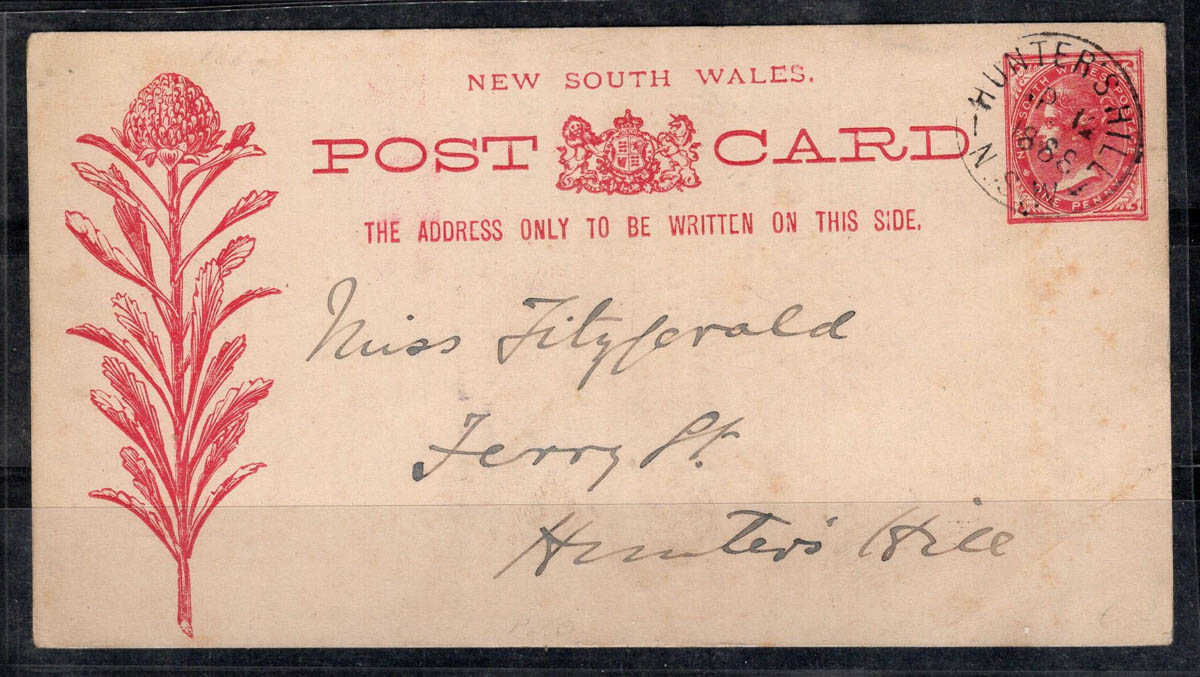 NEW SOUTH WALES.
POST CARD
THE ADDRESS ONLY TO BE WRITTEN ON THIS SIDE.
HUNTER'S-HILL
NEW SOUTH WALES
ONE PENNY
Miss Fitzgerald
Ferry St.
Hunter's Hill